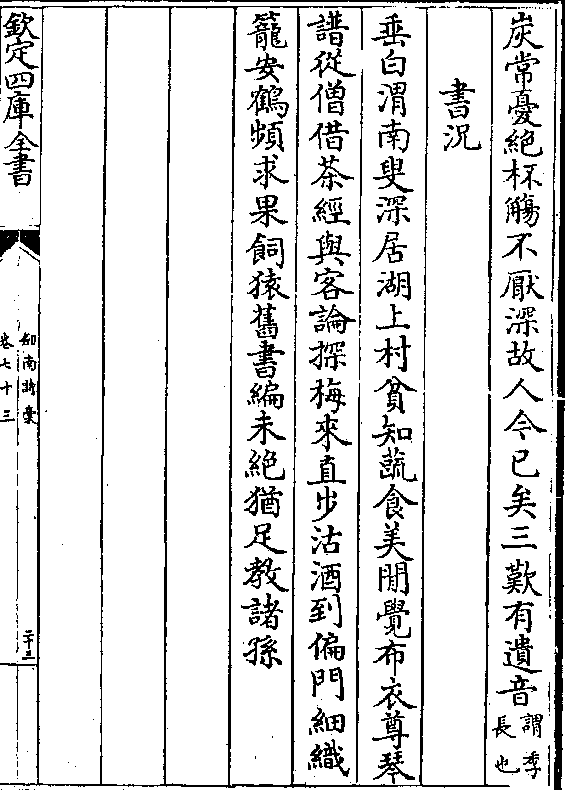 炭常憂絶杯觴不厭深故人今已矣三歎有遺音謂季長也
書况
垂白渭南叟深居湖上村貧知蔬食美閒覺布衣尊琴
譜從僧借茶經與客論探梅來直步沽酒到偏門細織
籠安鶴頻求果飼猿舊書編未絶猶足教諸孫
欽定四庫全書
劍南詩稾
卷七十三
二十三